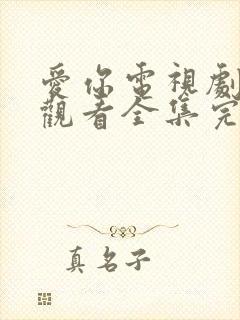 愛你電視劇
觀看全集完
真名子